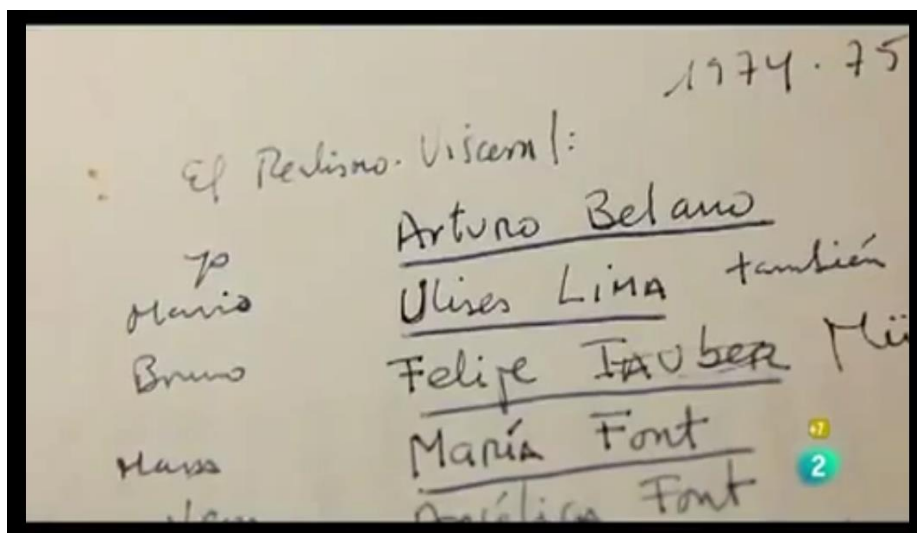 1974 . 75
El Realismo. Visceral:
yo Arturo Belano
Mario Ulises LiMA también
Bruno Felipe Müi
Mara María Font
Angélica Font
+7
2